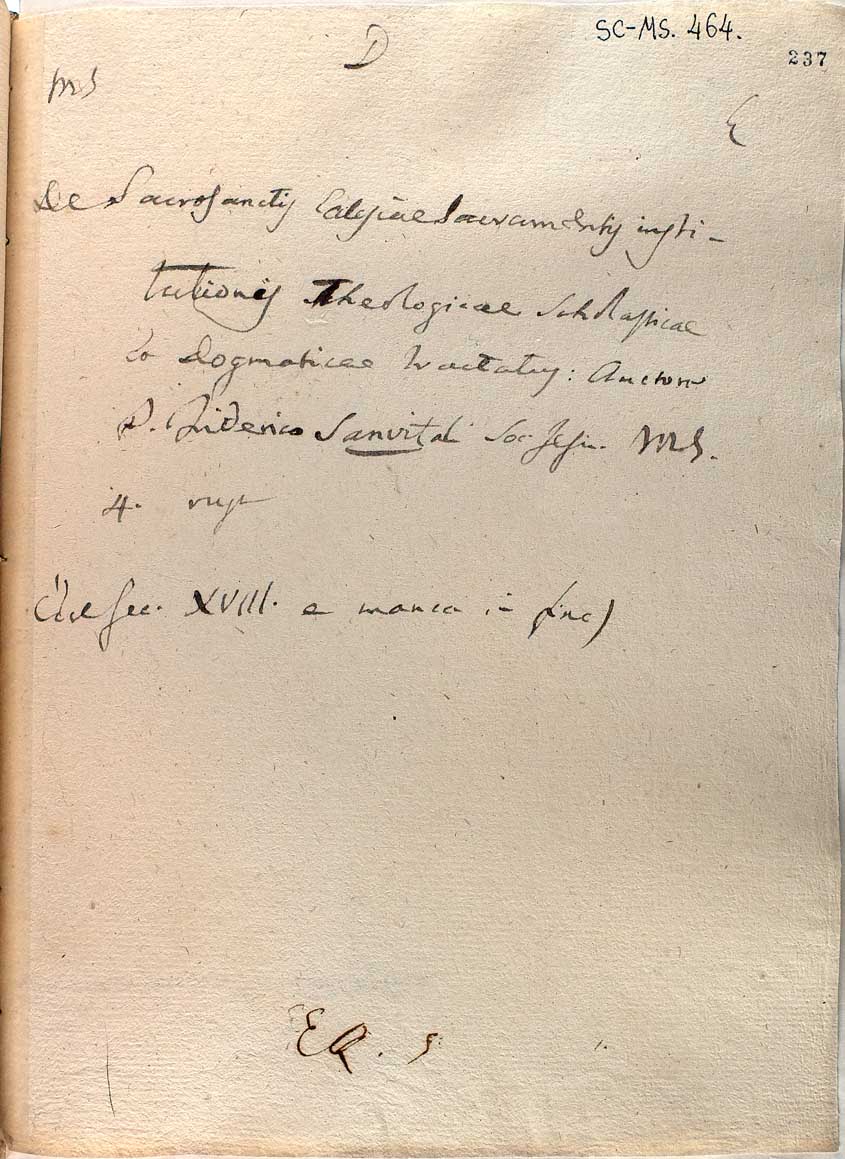 SC-MS. 464.
D
237
MS
E
De Sacrosanctis Eclesiae Sacramentis insti-
tutionis Theologicae Scholasticae
Dogmaticae tractatus: Auctore
P. Friderico Sanvitali Soc. Jesu. MS.
4.
Sec. XVIII. e manca in fine)
ER. 5